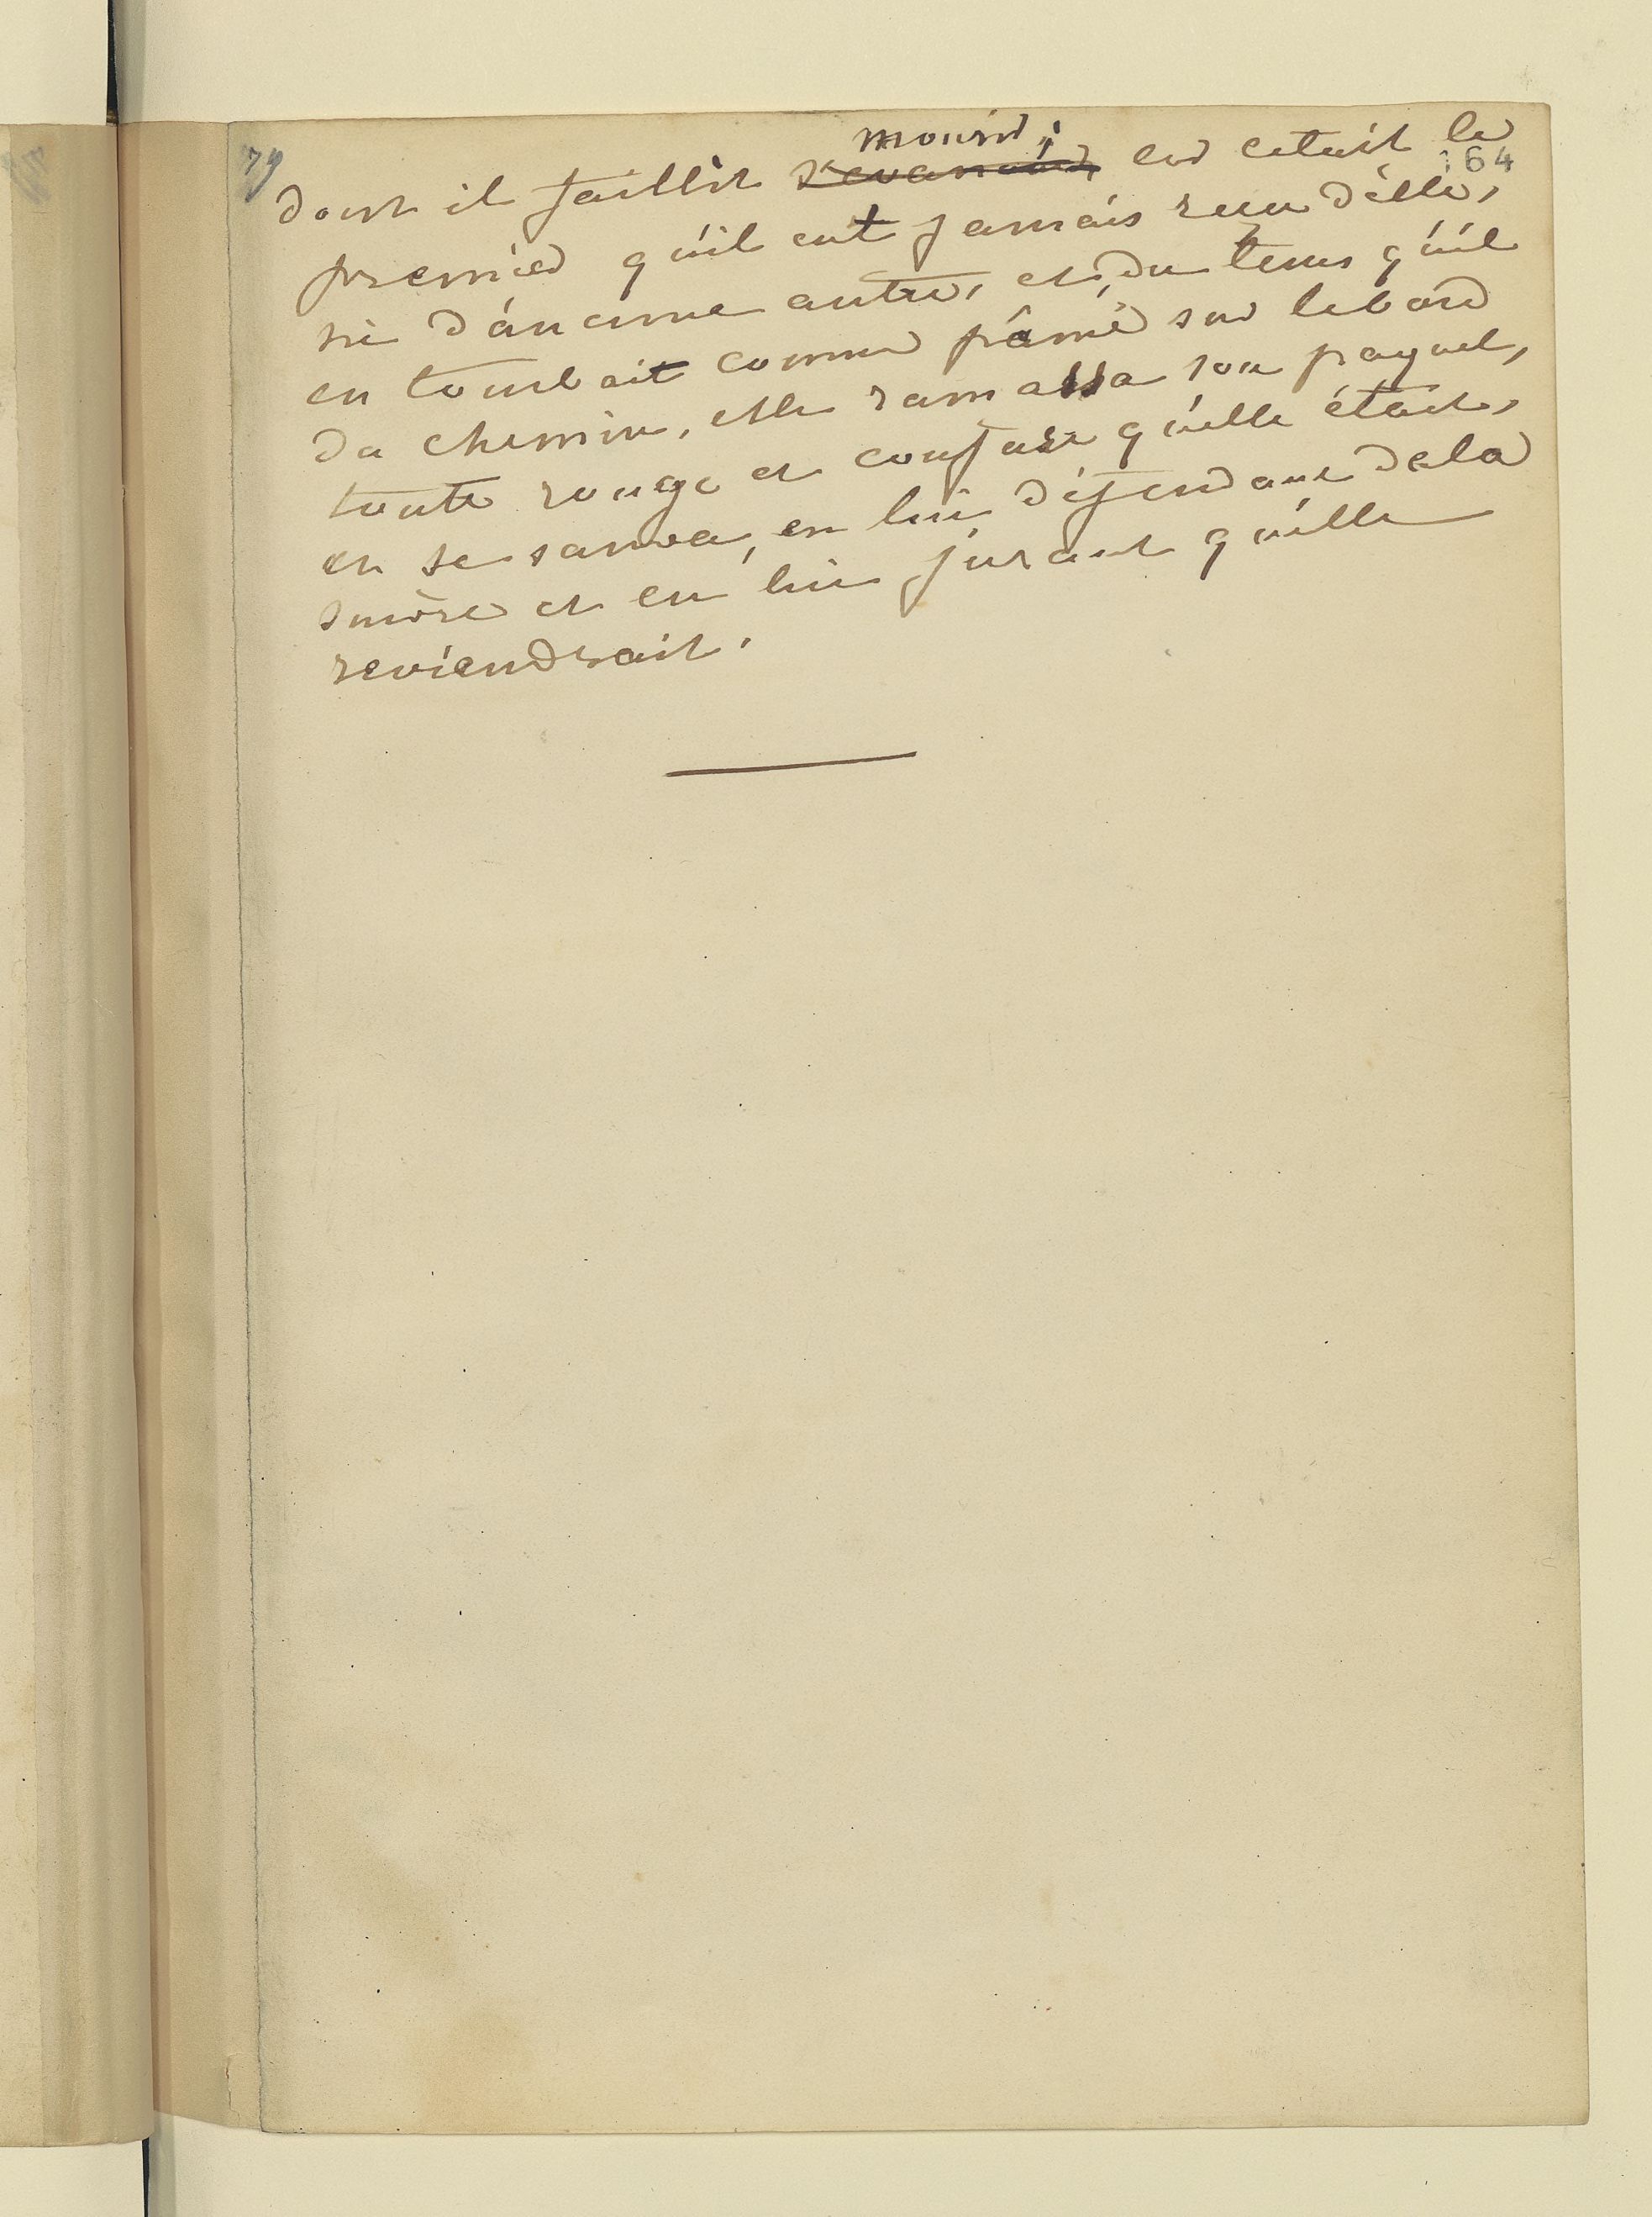 79
164
mourir ;
dont il faillit s'évanouir, car c'était le
premier qu'il eut jamais reçu d'elle,
ni d'aucune autre, et, du tems qu'il
en tombait comme pâmé sur le bord
du chemin, elle ramassa son paquet,
toute rouge et confuse qu'elle était,
et se sauva, en lui défendant de la
suivre et en lui jurant qu'elle
reviendrait.